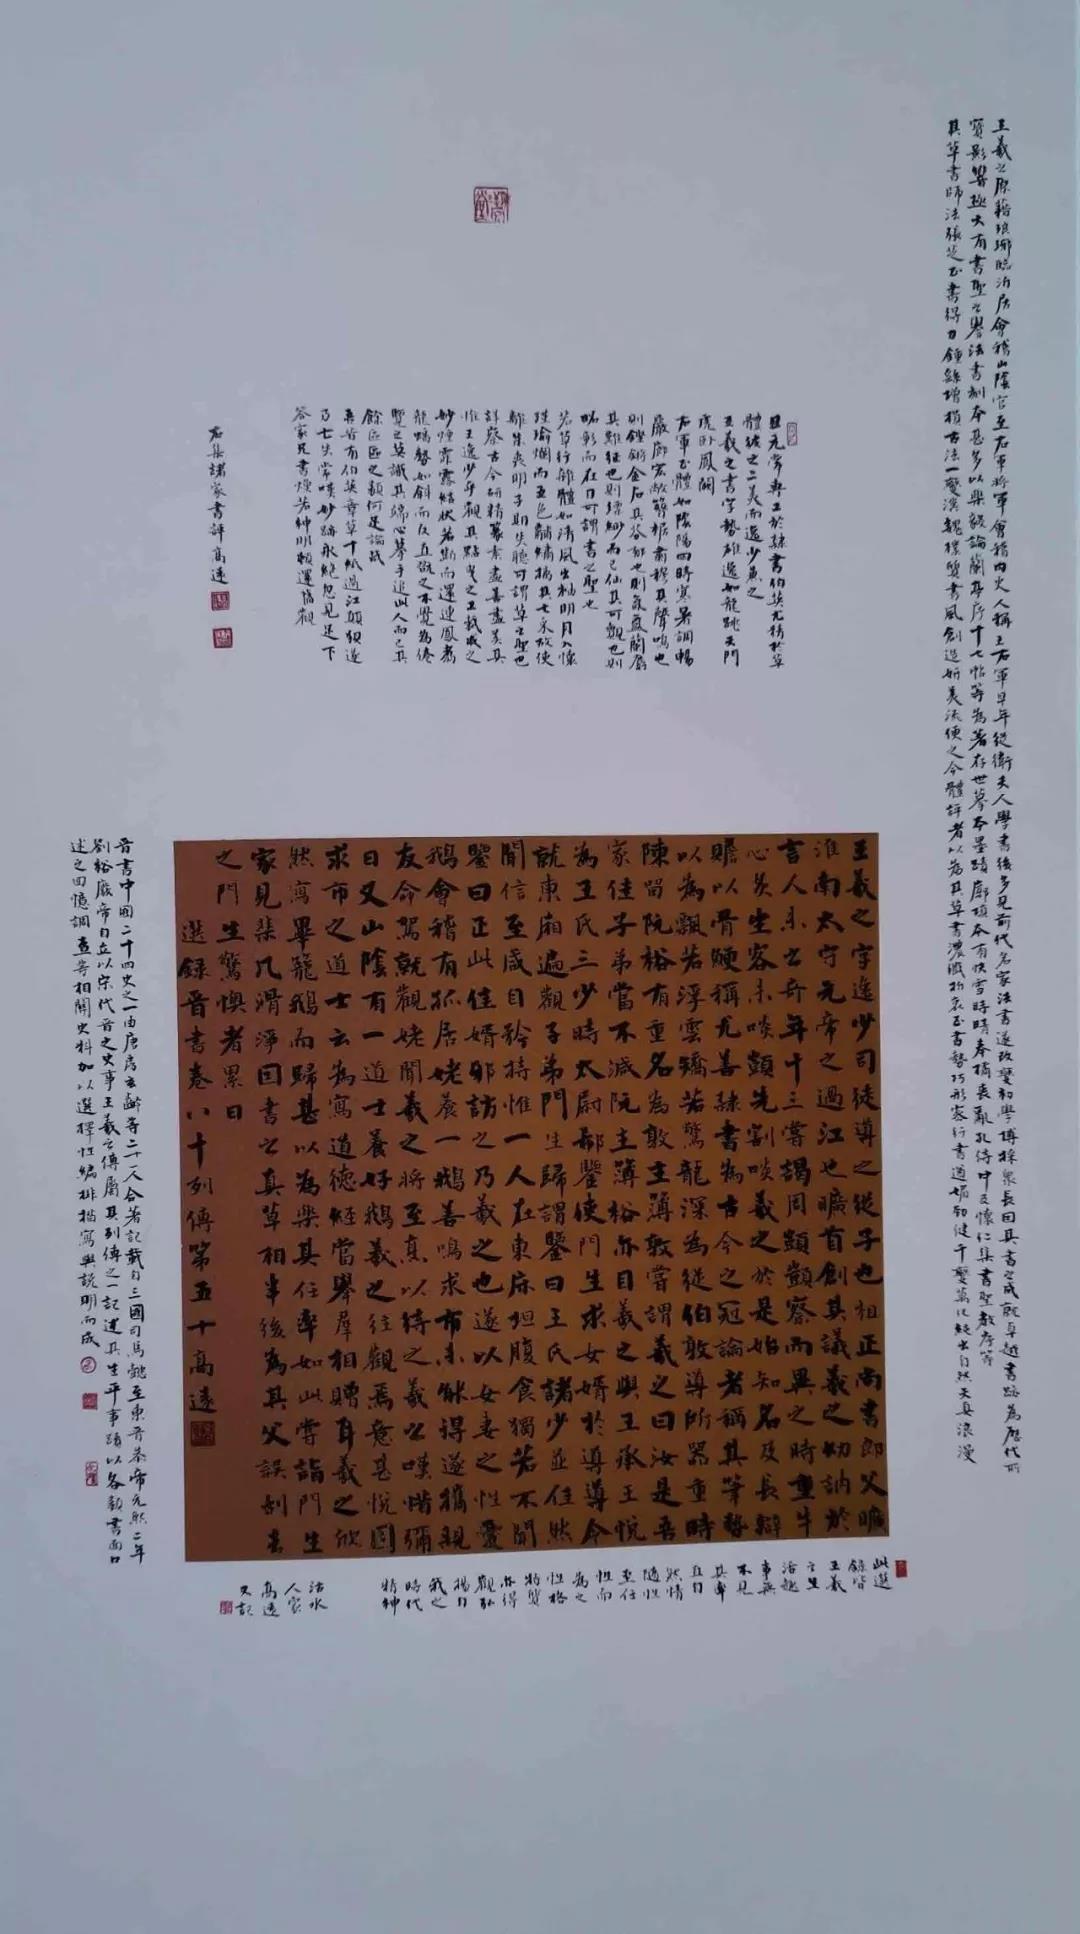 王羲之原籍琅琊臨沂居會稽山陰官至右軍將軍會稽內史人稱王右軍早年從衛夫人學書後多見前代名家法書遂改變初學博採眾長因其書之成就卓越書跡為歷代所
寶影響極大有書聖之譽法書刻本甚多以樂毅論蘭亭序十七帖等為著存世摹本墨蹟廓填本有快雪時晴奉橘喪亂孔侍中及懷仁集書聖教序等
其草書師法張芝正書得力鍾繇增損古法一變漢魏樸質書風創造妍美流便之今體評者以為其草書濃纖折衷正書勢巧形密行書遒媚勁健千變萬化純出自然天真浪漫
且元常專工於隸書伯英尤精於草
體彼之二美而逸少兼之
王羲之書字勢雄逸如龍跳天門
虎臥鳳闕
右軍正體如陰陽四時寒暑調暢
巖廊宏敞簪裾肅穆其聲鳴也
則鏗鏘金石其芬郁也則氤氳蘭麝
其難徵也則縹緲而已仙其可覿也則
昭彰而在目可謂書之聖也
若草行雜體如清風出袖明月入懷
瑾瑜爛而五色黼繡摛其七采故使
離朱喪明子期失聽可謂草之聖也
詳察古今研精篆素盡善盡美其
惟王逸少乎觀其點曳之工裁成之
妙煙霏露結狀若斷而還連鳳翥
龍蟠勢如斜而反直玩之不覺為倦
覽之莫識其端心摹手追此人而已其
餘區區之類何足論哉
吾昔有伯英章草十紙過江顛狽遂
乃亡失常嘆妙跡永絕忽見足下
答家兄書煥若神明頓還舊觀
右集諸家書評高遠
王羲之字逸少司徒導之從子也祖正尚書郎父曠
淮南太守元帝之過江也曠首創其議羲之幼訥於
言人未之奇年十三嘗謁周顗顗察而異之時重牛
心炙坐客未啖顗先割啖羲之於是始知名及長辯
贍以骨鯁稱尤善隸書為古今之冠論者稱其筆勢
以為飄若浮雲矯若驚龍深為從伯敦導所器重時
陳留阮裕有重名為敦主簿敦嘗謂羲之曰汝是吾
家佳子弟當不減阮主簿裕亦目羲之與王承王悅
為王氏三少時太尉郗鑒使門生求女婿於導導令
就東廂遍觀子弟門生歸謂鑒曰王氏諸少並佳然
聞信至咸自矜持惟一人在東床坦腹食獨若不聞
鑒曰正此佳婿邪訪之乃羲之也遂以女妻之性愛
鵝會稽有孤居姥養一鵝善鳴求市未能得遂攜親
友命駕就觀姥聞羲之將至烹以待之羲之嘆惜彌
日又山陰有一道士養好鵝羲之往觀焉意甚悅固
求市之道士云為寫道德經當舉群相贈耳羲之欣
然寫畢籠鵝而歸甚以為樂其任率如此嘗詣門生
家見棐几滑淨因書之真草相半後為其父誤刮去
之門生驚懊者累日
選錄晉書卷八十列傳第五十高遠
此選
錄皆
王羲
之生
活趣
事無
不見
其率
直自
然情
隨性
至任
性而
為之
性格
特質
亦得
觀弘
揚自
我之
時代
精神
活水
人家
高遠
又記
晉書中國二十四史之一由唐房玄齡等二十一人合著記載自三國司馬懿至東晉恭帝元熙二年
劉裕廢帝自立以宋代晉之史事王羲之傳屬其列傳之一記述其生平事蹟以各類書面口
述之回憶調查等相關史料加以選擇性編排描寫與說明而成